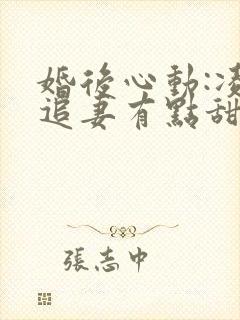 婚後心動:凌
追妻有點甜
張志中